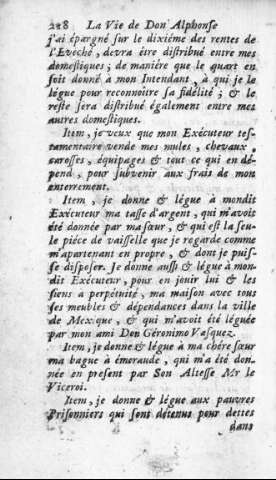 228 La Vie de Don Alphonse
j'ai épargné sur le dixiéme des rentes de
l'Evêché, devra être distribué entre mes
domestiques; de maniére que le quart en
soit donné à mon Intendant, à qui je le
légue pour reconnoitre sa fidélité; & le
reste sera distribué également entre mes
autres domestiques.
Item, je veux que mon Exécuteur tes-
tamentaire vende mes mules, chevaux,
carosses, équipages & tout ce qui en dé-
pend, pour subvenir aux frais de mon
enterrement.
Item, je donne & légue à mondit
Exécuteur ma tasse d'argent, qui m'avoit
été donnée par ma sœur, & qui est la seu-
le piéce de vaisselle que je regarde comme
m'apartenant en propre, & dont je puis-
se disposer. Je donne aussi & légue à mon-
dit Exécuteur, pour en jouir lui & les
siens à perpétuité, ma maison avec tous
ses meubles & dépendances dans la ville
de Mexique, & qui m'avoit été léguée
par mon ami Don Géronimo Vasquez.
Item, je donne & légue à ma chére sœur
ma bague à émeraude, qui m'a été don-
née en present par Son Altesse Mr le
Viceroi.
Item, je donne & légue aux pauvres
Prisonniers qui sont détenus pour dettes
dans